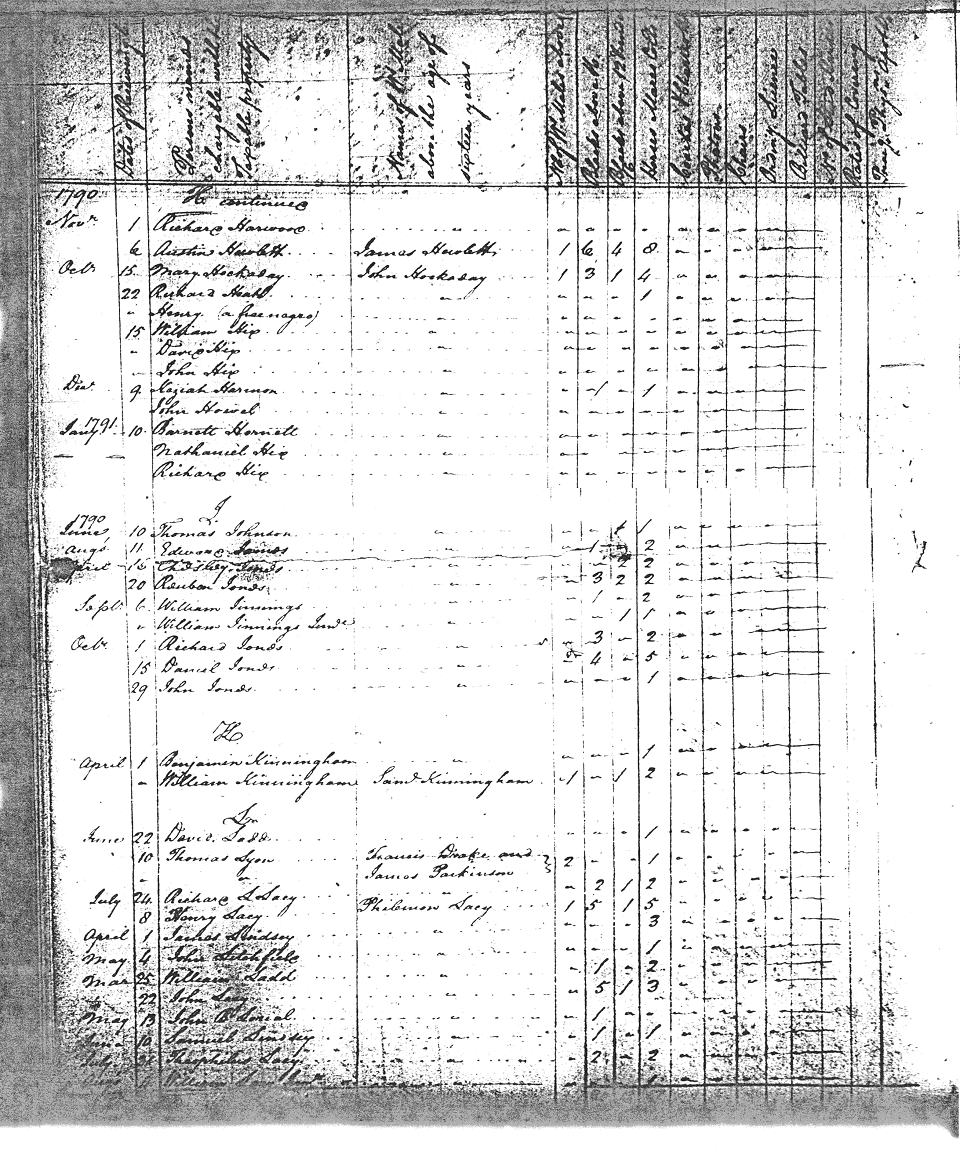 Dates of Receiving
Persons names chargeable with Taxable property
Names of Males above the age of sixteen years
Blacks above 16
Horses Mares Colts
Chairs
Ordinary Licence
Billiard Tables
Rates of Covering
1790 H continued
Novr 1 Richard Harwood
6 Austin Hewlett James Hewlett 1 6 4 8
Octr 15 Mary Hockaday John Hockaday 1 3 1 4
22 Richard Heath 1
" Henry (a free negro)
15 William Hix
" David Hix
" John Hix
Decr 9 Keziah Harmon 1 1
John Howel
1791 Jany 10 Barnett Hornett
Nathaniel Hix
Richard Hix
J
1790
June 10 Thomas Johnson 1
Augt 11 Edward James 1 2
April 2 2
20 Reuben Jones 3 2 2
Sept 6 William Jinnings 1 2
" William Jinnings Junr 1 1
Octr 1 Richard Jones 3 2
15 Daniel Jones 4 5
29 John Jones 1
K
April 1 Benjamin Kinningham 1
" William Kinningham Saml Kinningham 1 1 2
L
June 22 David Ladd 1
10 Thomas Lyon Francis Drake and 2 1
James Parkinson
" " 2 1 2
July 24 Richard L Lacy Philemon Lacy 1 5 1 5
8 Henry Lacy 3
April 1 James Lindsey
May 4 John Litchfield 1
Mar 25 William Ladd 1 2
22 John Lacy 5 1 3
May 13 John B 1
June 10 Samuel Lindsey 1 1
July Theophilus Lacy 2 2
William